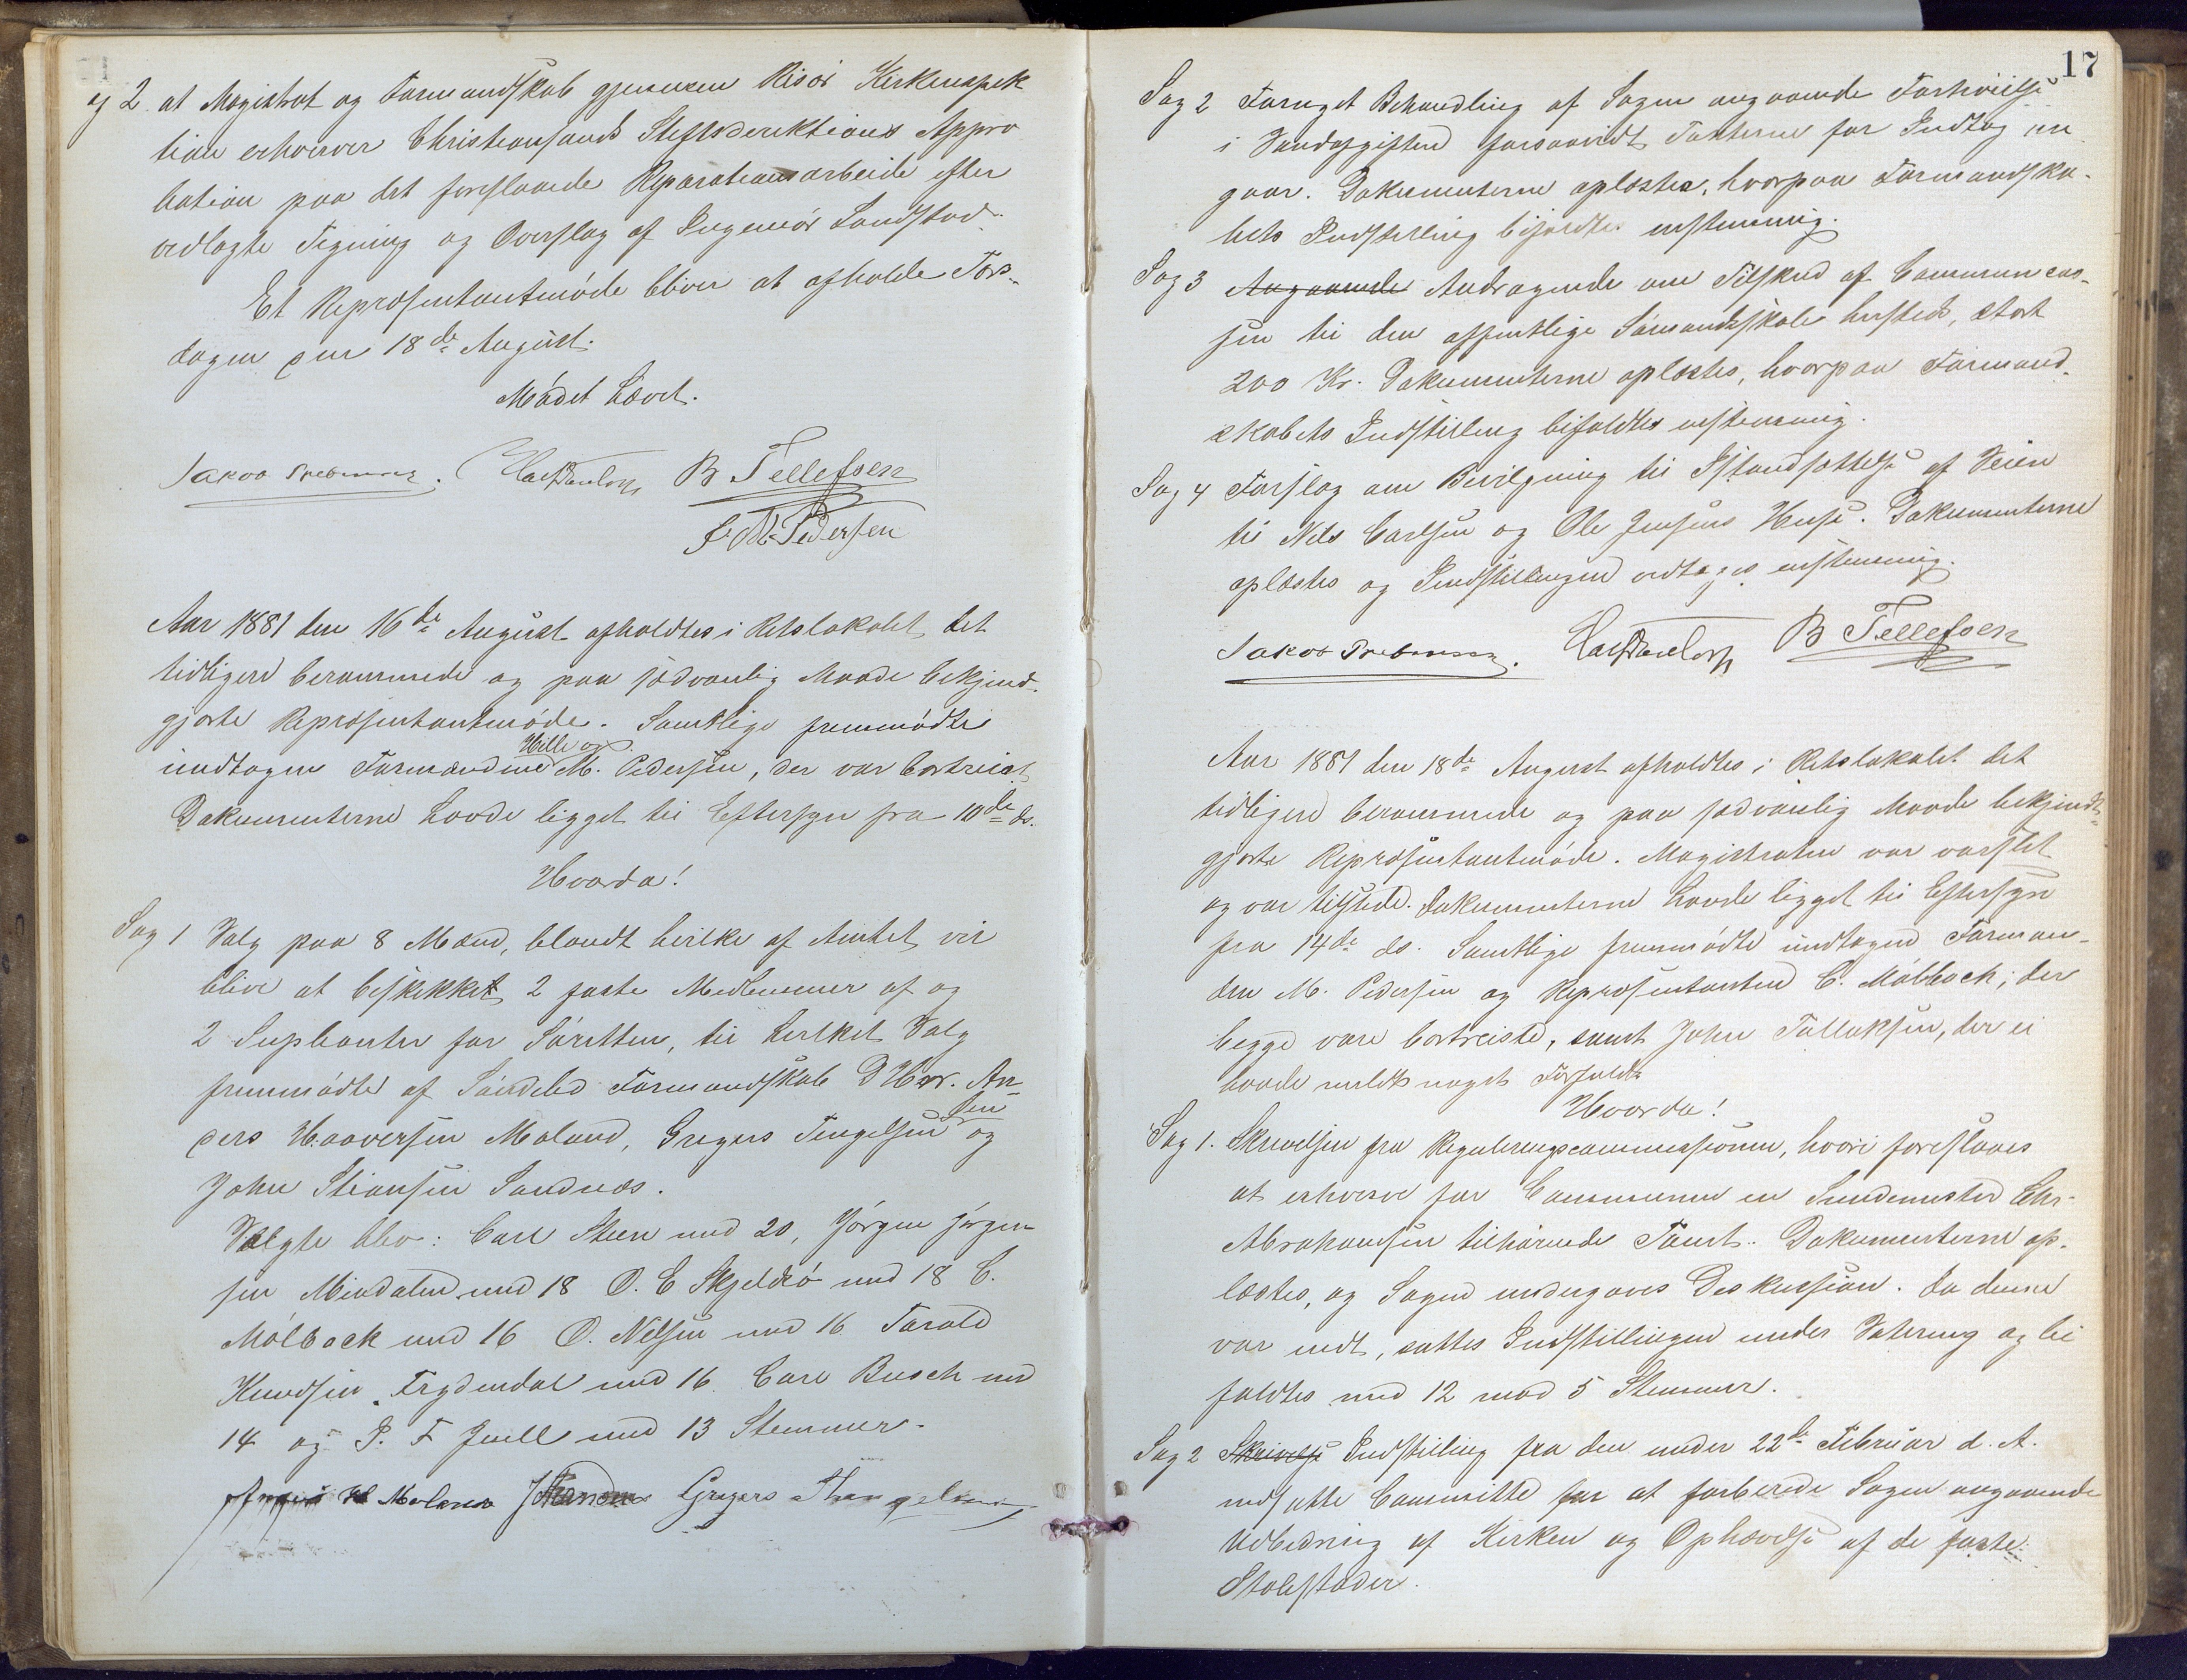 Sag 2 at Magistrat og Formandskab gjennem Risør Kirkeinspek
tion erhverver Christiansands Stiftsdirektions Appro
bation paa det foreslaaede Reparationsarbeide efter
vedlagte Tegning og Overslag af Ingeniør Sandstad.
Et Repræsentantmøde bliver at afholde Tors-
dagen den 18de August.
Mødet hævet.
Jakob Prebensen. B Tellefsen
J. M. Pedersen
Aar 1881 den 16de August afholdtes i Retslokalet det
tidligere berammede og paa sædvanlig Maade bekjend-
gjorte Repræsentantmøde. Samtlige fremmødte
Hille og
undtagen Formændene M. Pedersen, der var bortreist
Dokumenterne havde ligget til Eftersyn fra 10de ds.
Hvorda!
Sag 1 Valg paa 8 Mænd, blandt hvilke af Amtet vil
blive at beskikket 2 faste Medlemmer af og
2 Suplanter for Søretten, til hvilket Valg
fremmødte af Søndeled Formandskab D'Hrr. An-
ders Haaversen Moland, Gregers Tengelsen
sen og
John Stiansen Sandnæs.
Valgte blev: Carl Steen med 20, Jørgen Jørgen
sen Mindalen med 18 O. E Skjeldsø med 18 C.
Mølbock med 16 O. Nilsen med 16 Tarald
Knudsen Frydendal med 16 Carl Busch med
14 og P. F Juell med 13 Stemmer.
H Moland Gregers Thengelsen
17
Sag 2 Fornyet Behandling af Sagen angaaende Forhøielse
i Vandafgiften forsaavidt Taxterne for Indtag an
gaar. Dokumenterne oplæstes, hvorpaa Formandska-
bets Indstilling bifaldtes enstemmig.
Sag 3 Angaaende Andragende om Tilskud af Communecas-
sen til den offentlige Sømandsskole hersteds, stort
200 Kr. Dokumenterne oplæstes, hvorpaa Formand-
skabets Indstilling bifaldtes enstemmig.
Sag 4 Forslag om Bevilgning til Istandsættelse af Veien
til Nils Carlsen og Ole Jensens Huse. Dokumenterne
oplæstes og Indstillingen vedtages enstemmig.
Jakob Prebensen. B Tellefsen
Aar 1881 den 18de August afholdtes i Retslokalet det
tidligere berammede og paa sædvanlig Maade bekjendt-
gjorte Repræsentantmøde. Magistraten var varslet
og var tilstede. Dokumenterne havde ligget til Eftersyn
fra 14de ds. Samtlige fremmødte undtagen Forman-
den M. Pedersen og Repræsentanten C. Mølback, der
begge vare bortreiste, samt John Tallaksen, der ei
havde meldt noget Forfald.
Hvorda!
Sag 1. Skrivelsen fra Reguleringscommissionen, hvori foreslaaes
at erhverve for Communen en Smedemester Chr.
Abrahamsen tilhørende Tomt. Dokumenterne op-
læstes, og Sagen undergaves Diskussion. Da denne
var endt, sattes Indstillingen under Votering og bi
faldtes med 12 mod 5 Stemmer.
Sag 2 Skrivelse Indstilling fra den under 22de Februar d. A.
nedsatte Committe for at forberede Sagen angaaende
Udbedring af Kirken og Ophævelse af de faste
Stolestader.